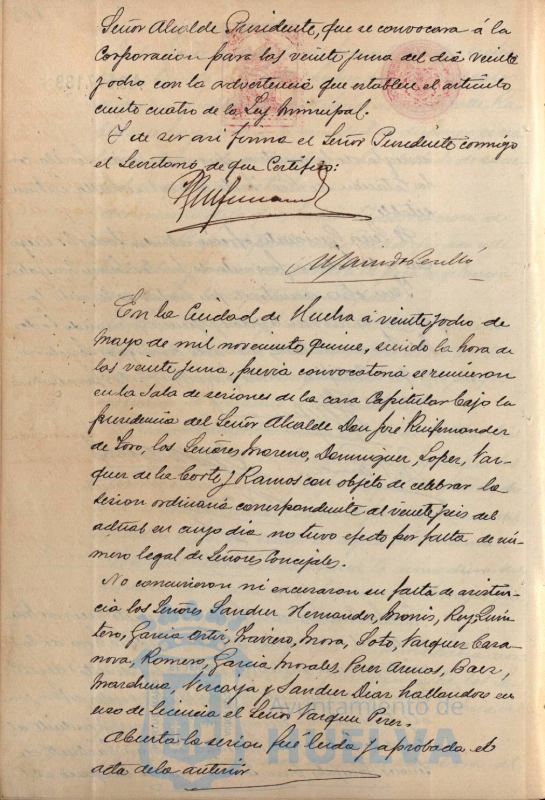 Señor Alcalde Presidente, que se convocara á la
Corporacion para las veinte y una del dia veinte
y ocho con la advertencia que establece el articulo
ciento cuatro de la Ley Municipal.
Y de ser asi firma el Señor Presidente conmigo
el Secretario de que Certifico:
En la Ciudad de Huelva á veinte y ocho de
Mayo de mil novecientos quince, siendo la hora de
las veinte y una, previa convocatoria se reunieron
en la Sala de sesiones de la casa Capitular bajo la
presidencia del Señor Alcalde Don José Ruifernandez
de Toro, los Señores Moreno, Dominguez, Lopez, Vaz-
quez de la Corte y Ramos con objeto de celebrar la
sesion ordinaria correspondiente al veinte y seis del
actual en cuyo dia no tuvo efecto por falta de nú-
mero legal de Señores Concejales.
No concurrieron ni excusaron su falta de asisten-
cia los Señores Sanchez Hernandez, Monis, Rey, Quin-
tero, Garcia Ortiz, Traviero, Mora, Soto, Vazquez Casa-
nova, Romero, Garcia Morales, Perez Arenas, Baez,
Marchena, Vizcaya y Sanchez Diaz hallandose en
uso de licencia el Señor Vazquez Perez.
Abierta la sesion fué leida y aprobada el
acta de la anterior
Ayuntamiento de
HUELVA